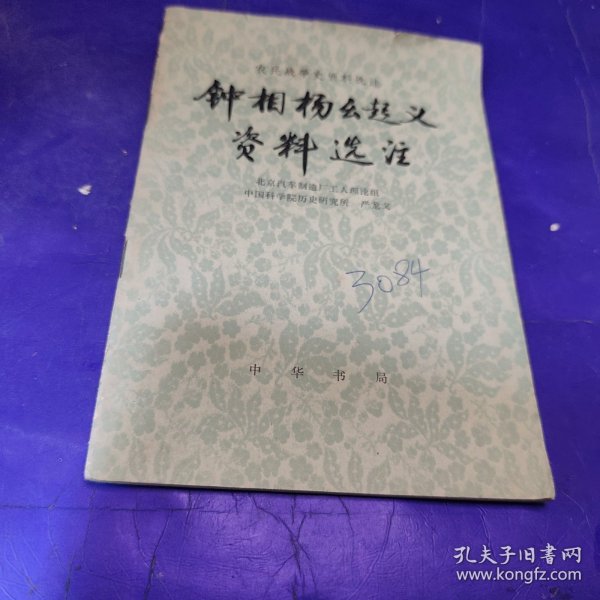 农民战争史资料选注
钟相杨么起义
资料选注
北京汽车制造厂工人理论组
中国科学院历史研究所 严敦文
3084
中华书局
孔夫子旧书网
www.kongfz.com